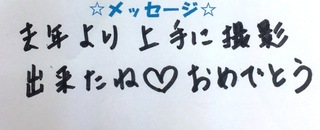 ☆メッセージ☆
去年より上手に撮影
出来たね♡おめでとう